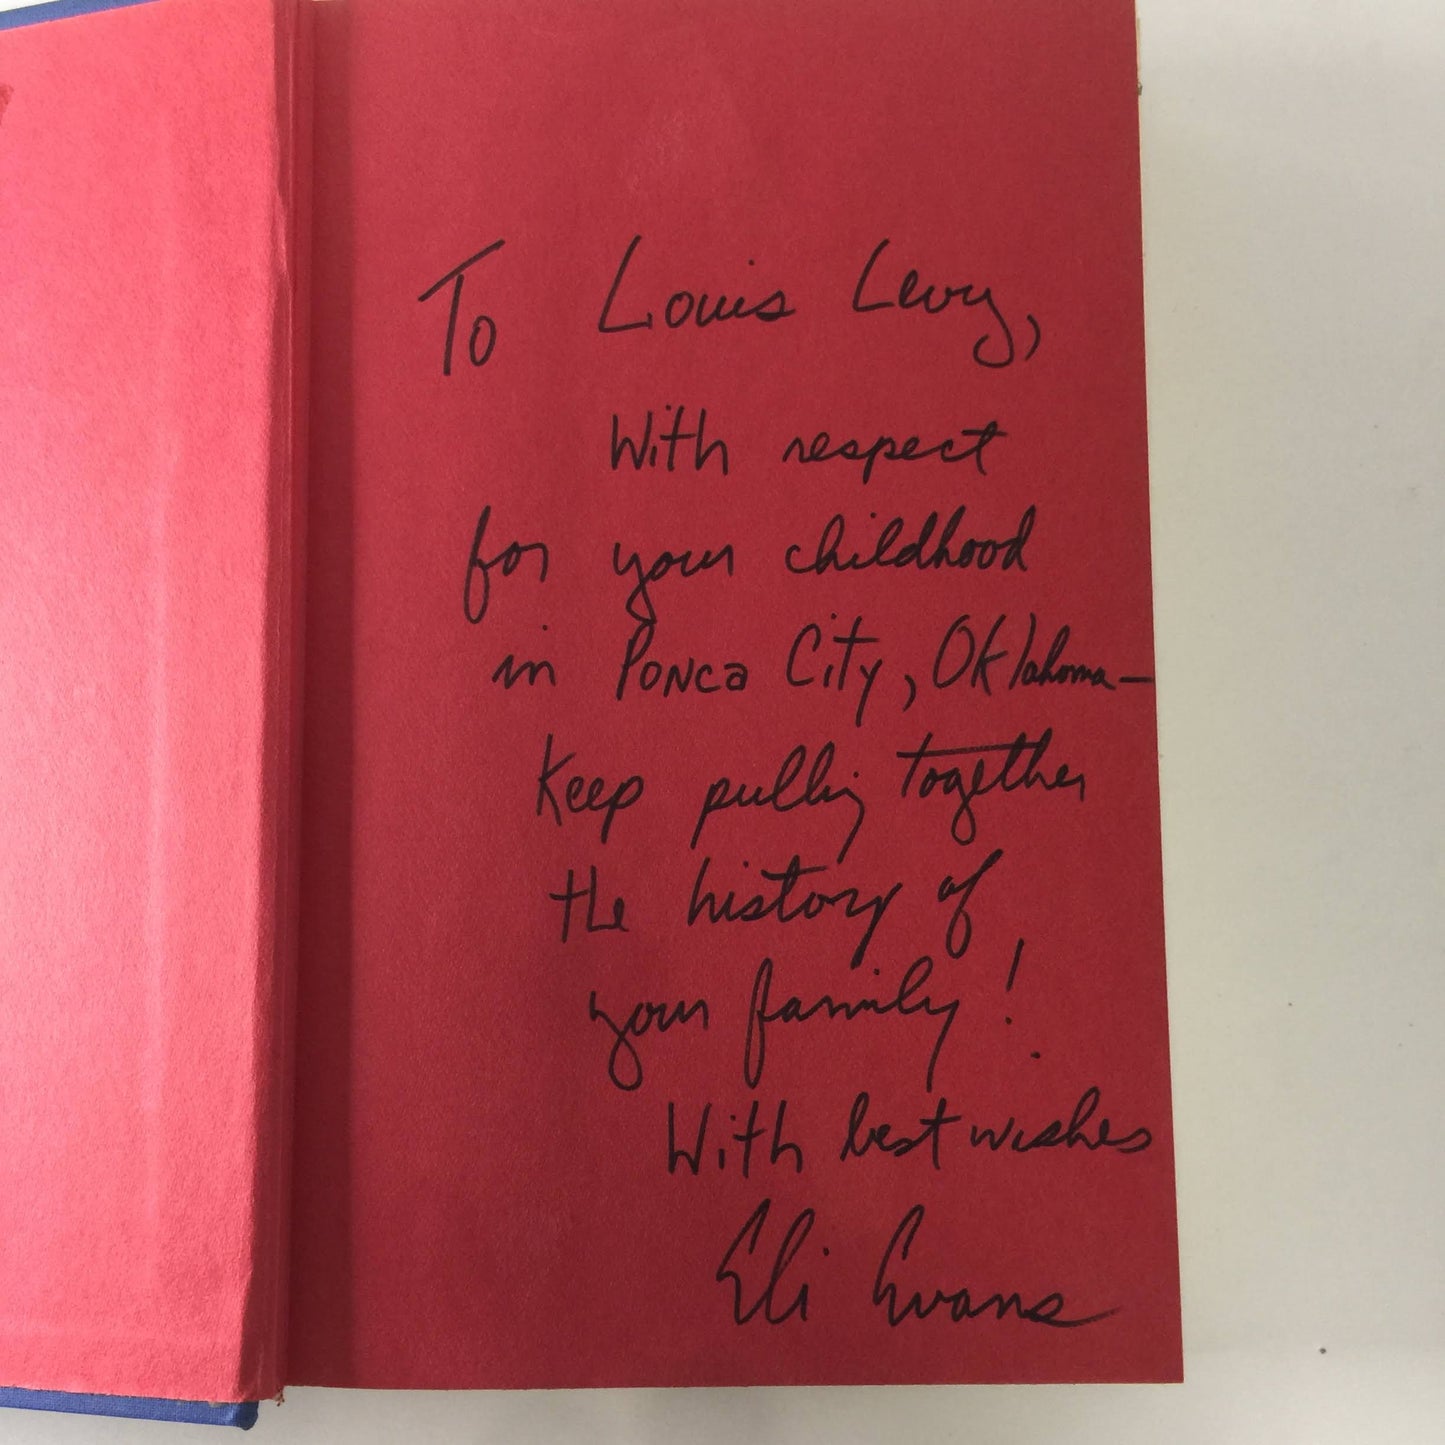 To Louis Levy,
With respect
for your childhood
in Ponca City, Oklahoma—
Keep pulling together
the history of
your family!
With best wishes
Eli Evans